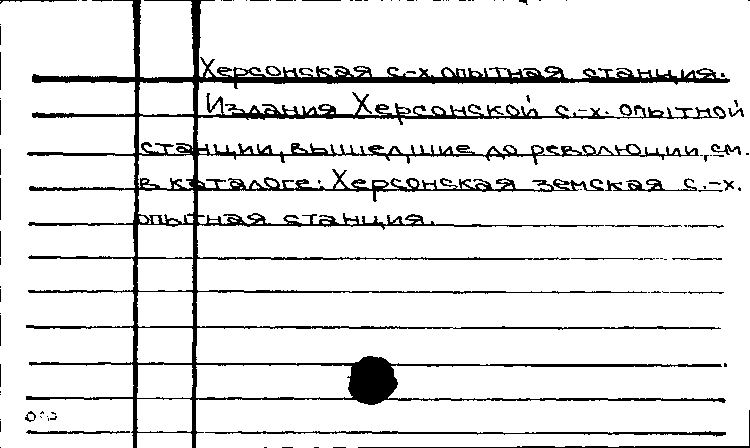 Херсонская с-х. опытная станция.
Издания Херсонской с.-х. опытной
станции, вышедшие до революции, см.
в каталоге: Херсонская земская с.-х.
опытная станция.